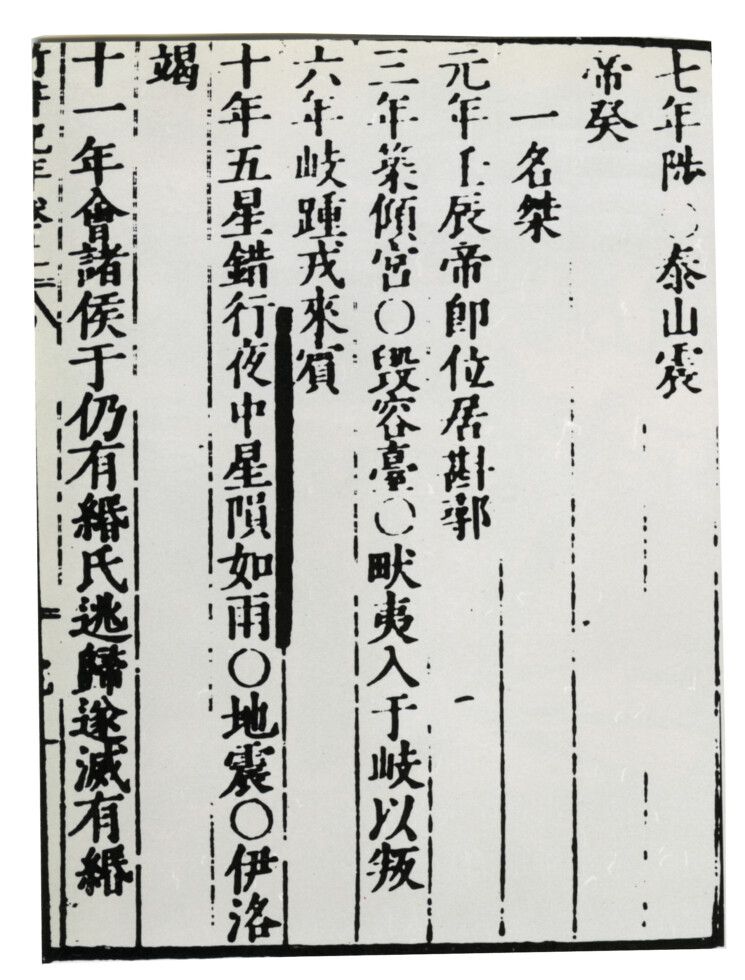 七年陟○泰山震
帝癸
一名桀
元年壬辰帝卽位居斟鄩
三年築傾宮○毀容臺○畎夷入于岐以叛
六年岐踵戎來賓
十年五星錯行夜中星隕如雨○地震○伊洛
竭
十一年會諸侯于仍有緡氏逃歸遂滅有緡
竹書紀年卷上